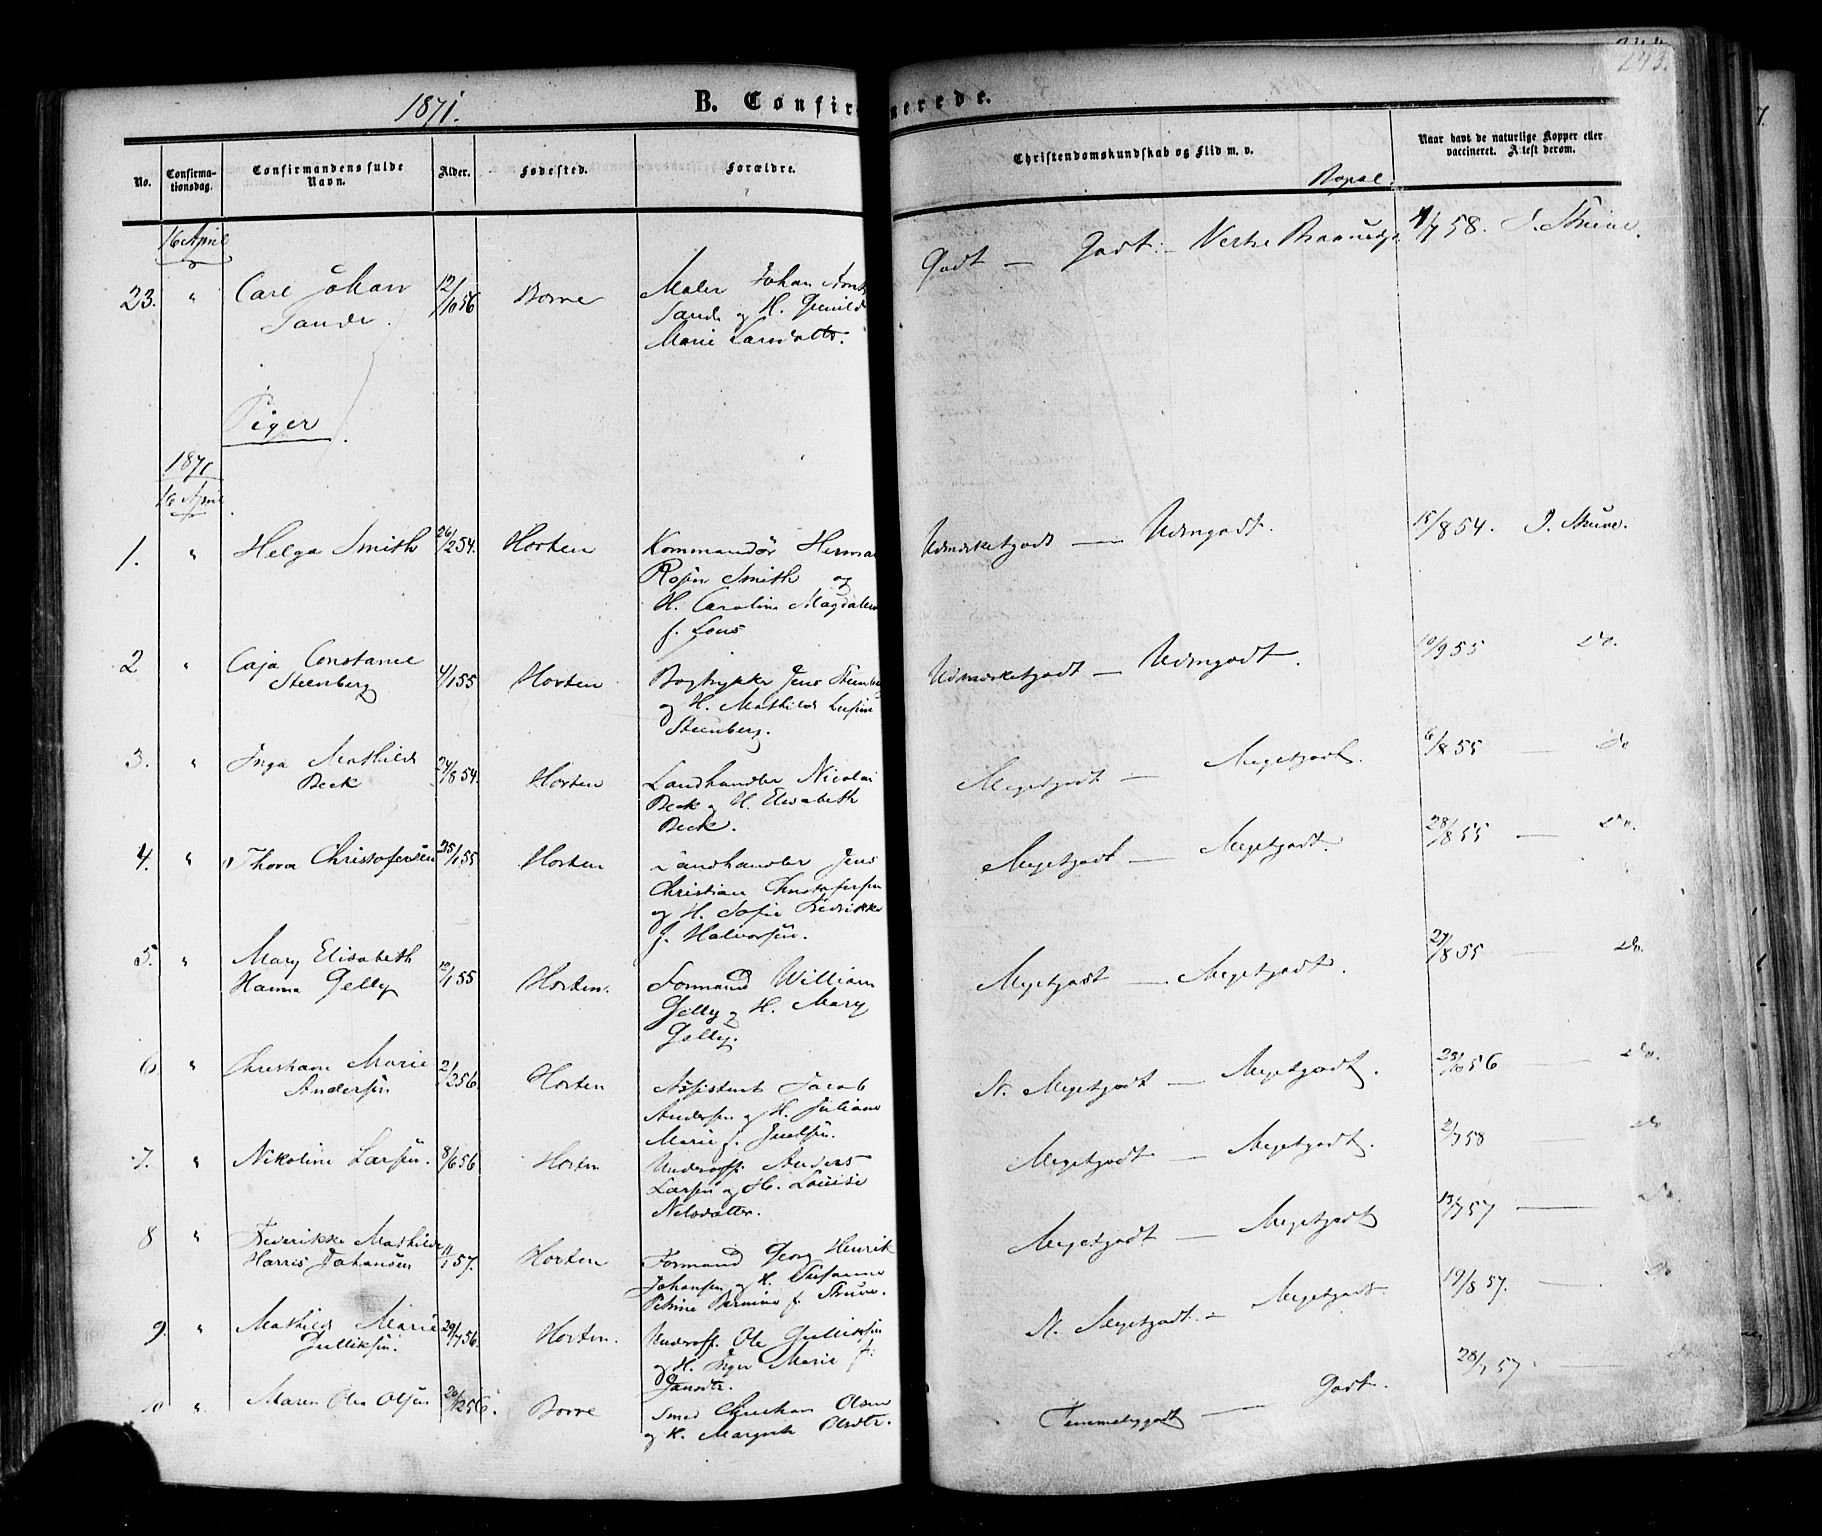 1871.
B. Confir
merede.
243.
No.
Confirma-
tionsdag.
Confirmandens fulde
Navn.
Alder.
Fødested.
Forældre.
Christendomskundskab og Flid m. v.
Bopæl.
Naar havt de naturlige Kopper eller
vaccineret. Attest derom.
16 April
23. " Carl Johan 12/10 56 Borre Maler Johan
Sande. Sande og H.
Marie Larsdatter.
Godt — Godt. — Vestre 4/7 58. J. Struve.
Piger
1871
16 April
1. " Helga Smith 26/2 54. Horten Kommandør Herma
Rosen Smith og
H. Caroline Magdalene
f. Lous
Udmærketgodt — Udmgodt. 15/8 54. J. Struve.
2 " Caja Constance 4/1 55 Horten Bogtrykker Jens Steenberg
Steenberg og H. Mathilde
Steenberg.
Udmærketgodt — Udmgodt. 10/9 55 Do.
3. " Inga Mathilde 24/8 54. Horten Landhandler Nicolai
Beck Beck og H. Elisabeth
Beck.
Megetgodt — Megetgodt. 6/8 55 — Do
4. " Thora Christofersen 25/1 55 Horten Landhandler Jens
Christian Christofersen
og H. Sofie Fredrikke
f. Halvorsen.
Megetgodt — Megetgodt. 28/8 55 — Do.
5. " Mary Elisabeth 12/1 55 Horten. Formand William
Hanna Gelly Gelly og H. Mary
Gelly.
Megetgodt — Megetgodt. 27/8 55 — Do.
6 " Christiane Marie 2/2 56. Horten Assistent Jacob
Andersen Andersen og H. Juliane
Marie f.
N. Megetgodt — Megetgodt. 23/10 56 — Do.
7. " Nikoline Larsen. 8/6 56. Horten Underoff. Anders
Larsen og H. Louise
Nelsdatter.
Megetgodt — Megetgodt. 2/7 58 Do
8 " Frederikke Mathilde 57. Horten Formand Georg Henrik
Harris Johansen Johansen og H. Susanne
Petrine f. Struve.
Megetgodt — Megetgodt 13/7 57 — Do.
9. " Mathilde Marie 29/7 56. Horten. Underoff. Ole Gulliksen
Gulliksen. og H. Inger Marie f.
Jansdtr.
N. Megetgodt. — Megetgodt 19/8 57. — Do
10 " Maren Olea Olsen 20/12 56. Borre Smed Christian Olsen
og H. Margrete Olsdtr.
Temmeliggodt — Godt. 28/7 57 — Do